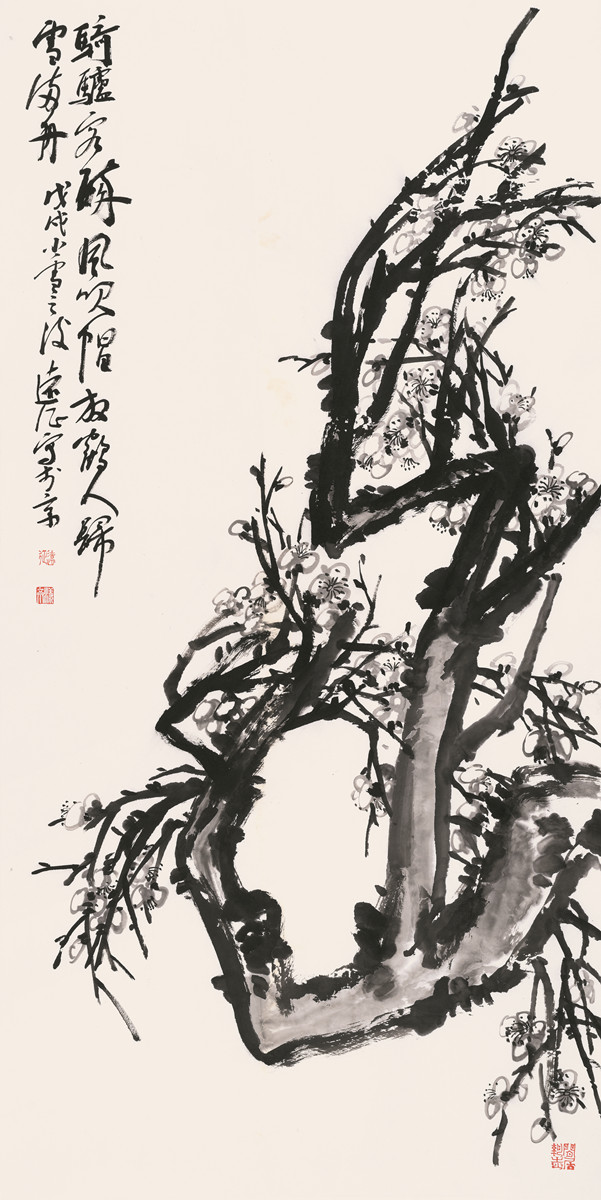 騎驢客醉風吹帽放鶴人歸
雪滿舟 戊戌小雪之後遠征寫於京